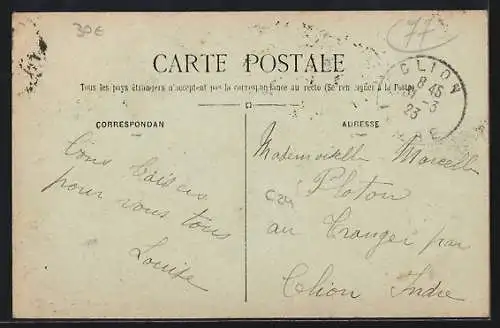 30E
77
CARTE POSTALE
Tous les pays étrangers n'acceptent pas la correspondance au recto (Se renseigner à la Poste)
CORRESPONDAN
ADRESSE
CLION
8 45
31-3
23
Bons baisers
pour vous tous
Louise
Mademoiselle Marcelle
Ploton
au Tranger par
Clion Indre